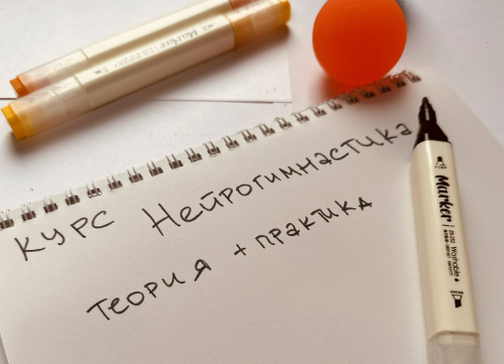 Marker
курс Нейрогимнастика
теория + практика
Marker
Washable